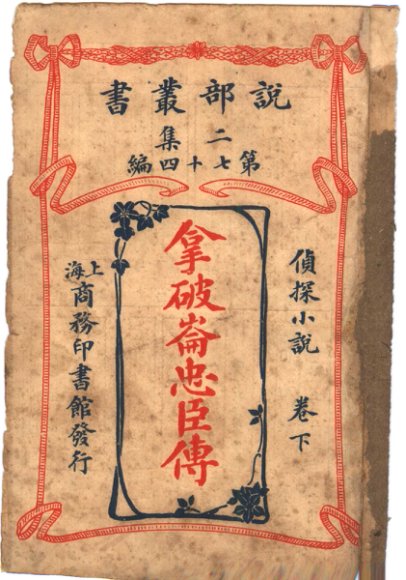 說部叢書
二集
第七十四編
偵探小說 卷下
拿破崙忠臣傳
上海
商務印書館發行